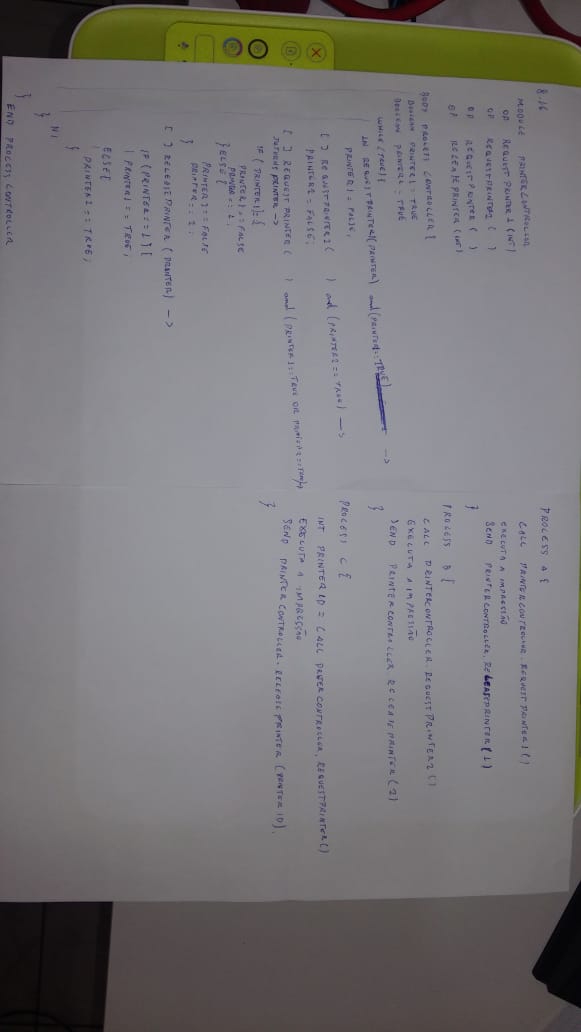 8.16
MODULE PRINTERCONTROLLER
OP REQUEST PRINTER 1 (INT)
OP REQUESTPRINTER2 ( )
OP REQUEST PRINTER ( )
OP RELEASE PRINTER (INT)
BODY PROCESS CONTROLLER {
BOOLEAN PRINTER1 = TRUE
BOOLEAN PRINTER2 = TRUE
WHILE (TRUE){
IN REQUESTPRINTER1(PRINTER) and (PRINTER1== TRUE) ->
PRINTER1 = FALSE;
[ ] REQUESTPRINTER2 ( ) and (PRINTER2 == TRUE) ->
PRINTER2 = FALSE;
[ ] REQUEST PRINTER ( ) and (PRINTER1==TRUE OR PRINTER2==TRUE)
RETURNS PRINTER ->
IF (PRINTER1){
PRINTER1 == FALSE
PRINTER = 1;
} ELSE {
PRINTER2 == FALSE
PRINTER = 2;
}
[ ] RELEASE PRINTER (PRINTER) ->
IF (PRINTER == 1) {
PRINTER1 == TRUE;
ELSE{
PRINTER2 == TRUE;
}
NI
}
}
END PROCESS CONTROLLER
PROCESS A {
CALL PRINTERCONTROLLER.REQUEST PRINTER1 ()
EXECUTA A IMPRESSÃO
SEND PRINTERCONTROLLER.RELEASEPRINTER (1)
}
PROCESS B {
CALL PRINTERCONTROLLER.REQUEST PRINTER2 ()
EXECUTA A IMPRESSÃO
SEND PRINTERCONTROLLER RELEASE PRINTER (2)
}
PROCESS C {
INT PRINTER ID = CALL PRINTER CONTROLLER.REQUESTPRINTER()
EXECUTA A IMPRESSÃO
SEND PRINTER CONTROLLER.RELEASE PRINTER (PRINTER ID).
}